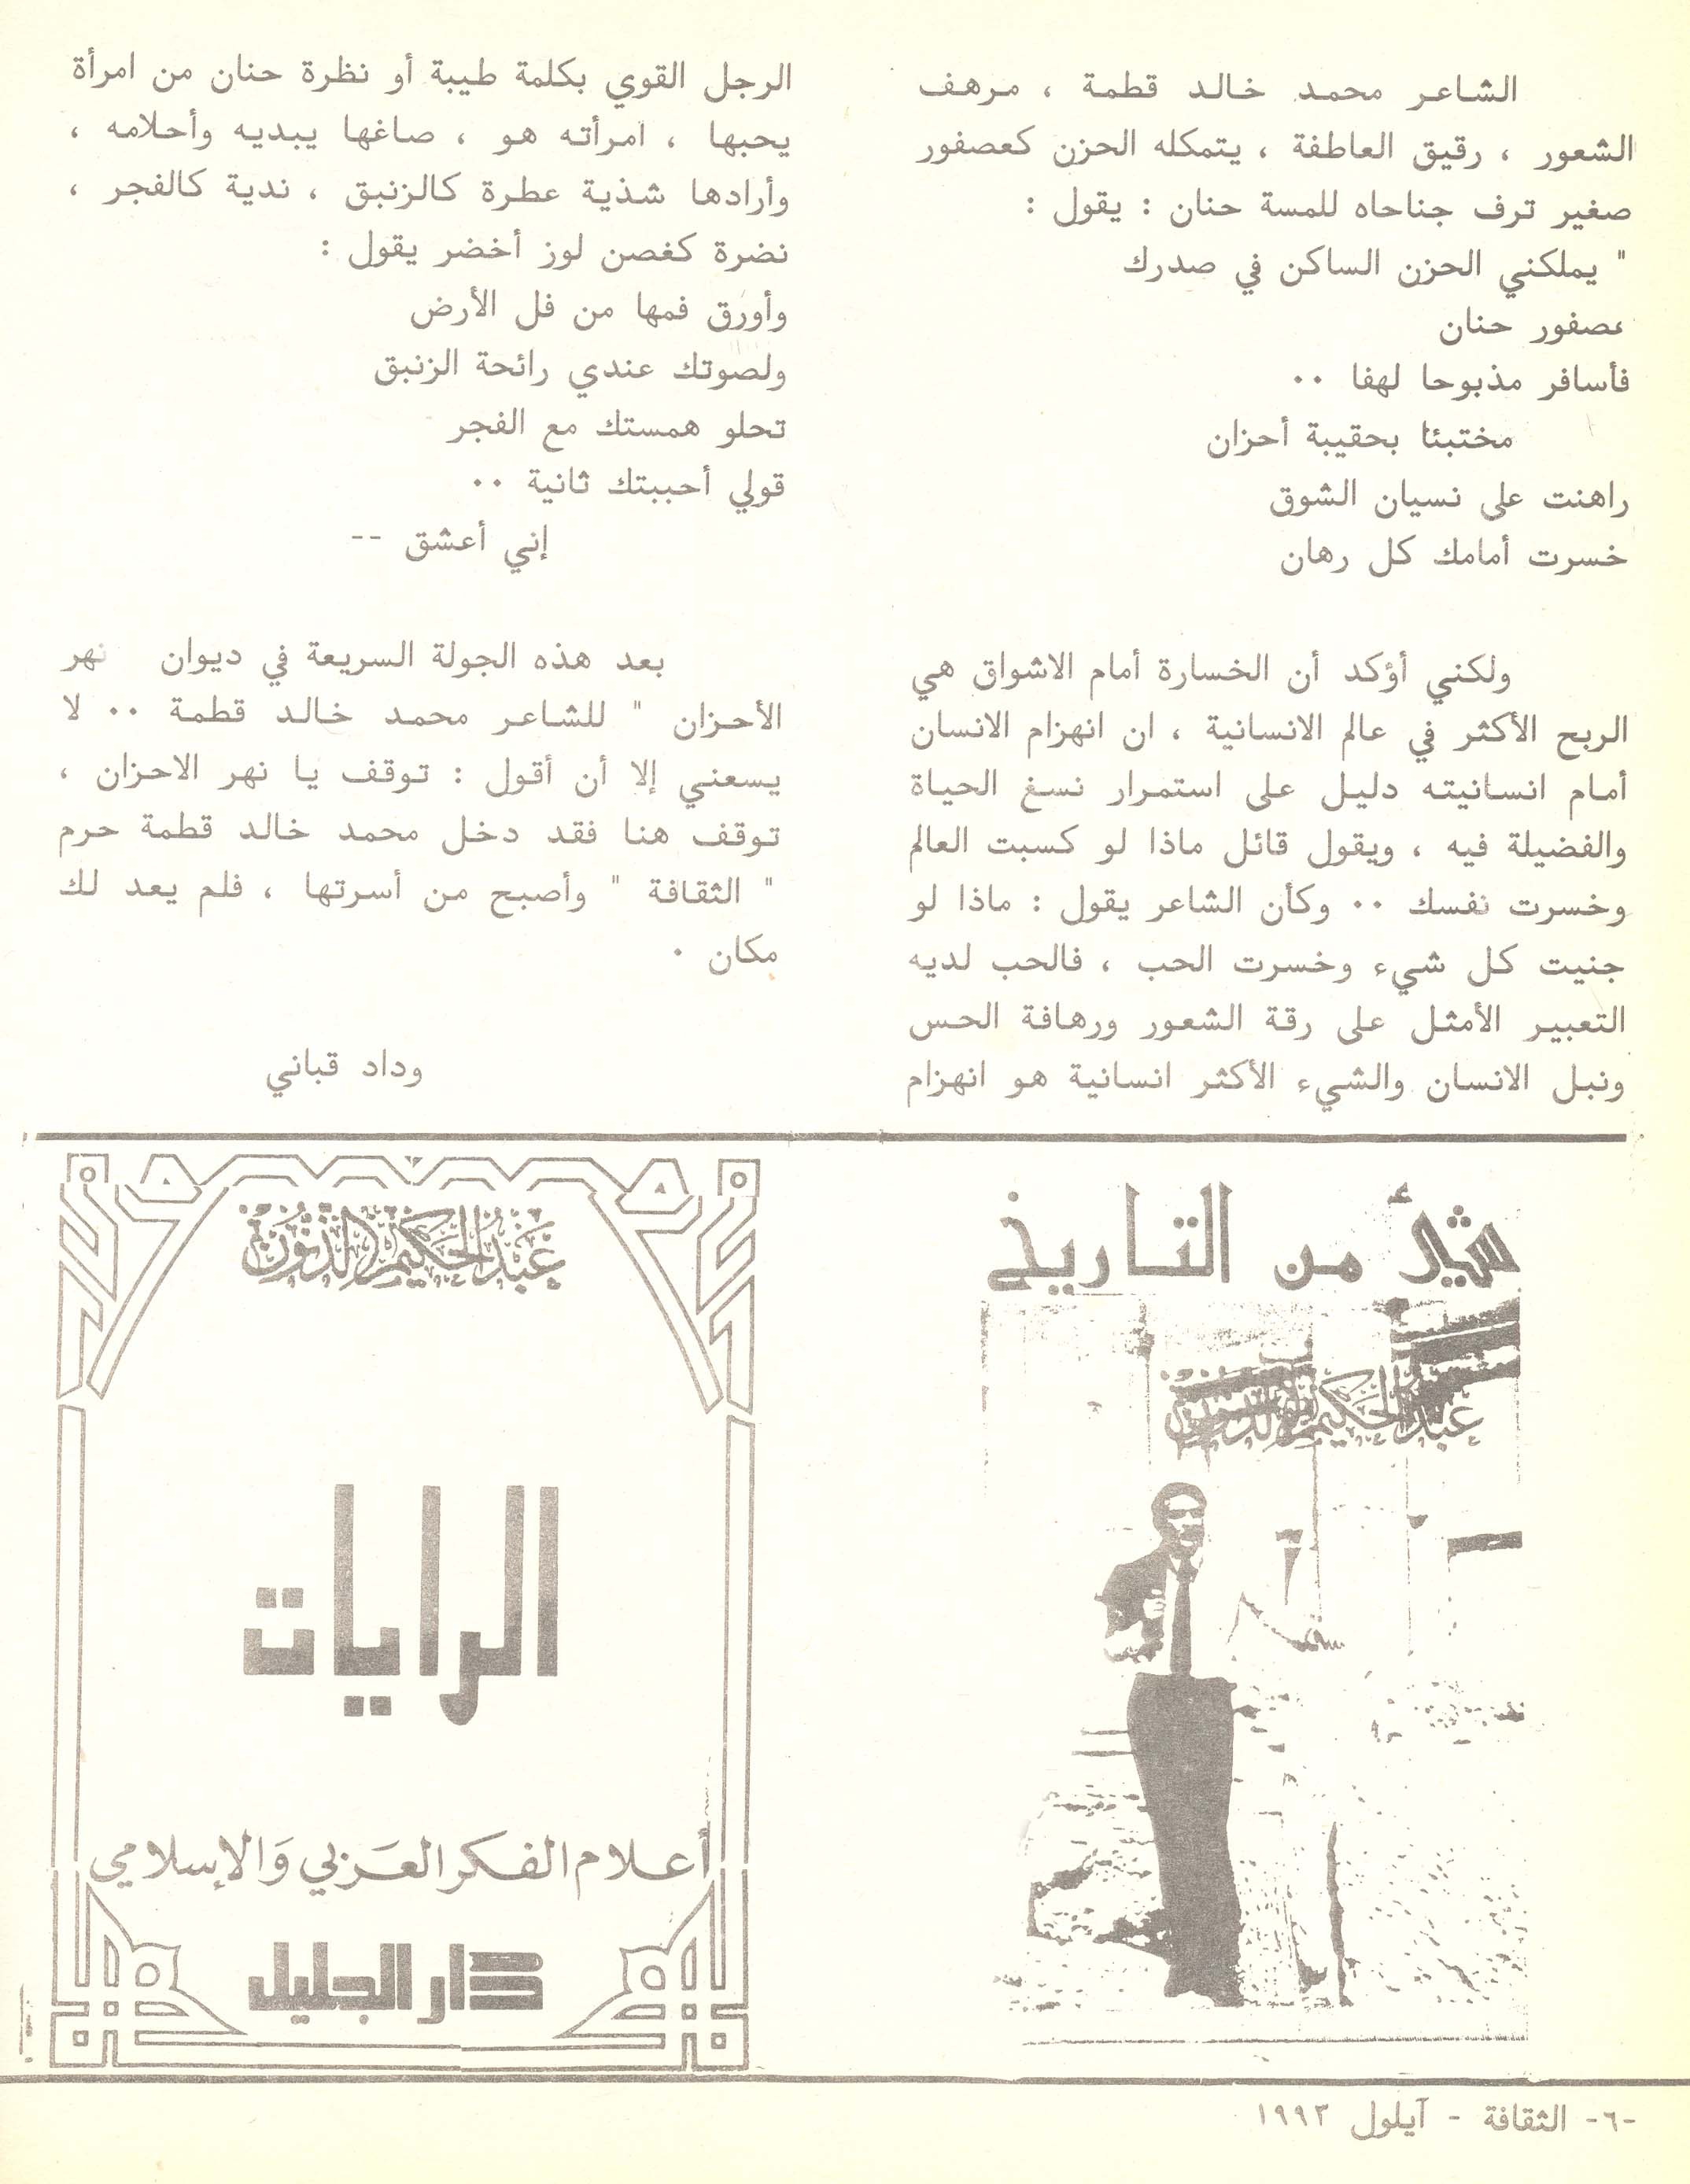 الشاعر محمد خالد قطمة ، مرهف
الشعور ، رقيق العاطفة ، يتمكله الحزن كعصفور
صغير ترف جناحاه للمسة حنان : يقول :
" يملكني الحزن الساكن في صدرك
عصفور حنان
فأسافر مذبوحا لهفا ٠٠
مختبئا بحقيبة أحزان
راهنت على نسيان الشوق
خسرت أمامك كل رهان
ولكني أؤكد أن الخسارة أمام الاشواق هي
الربح الأكثر في عالم الانسانية ، ان انهزام الانسان
أمام انسانيته دليل على استمرار نسغ الحياة
والفضيلة فيه ، ويقول قائل ماذا لو كسبت العالم
وخسرت نفسك ٠٠ وكأن الشاعر يقول : ماذا لو
جنيت كل شيء وخسرت الحب ، فالحب لديه
التعبير الأمثل على رقة الشعور ورهافة الحس
ونبل الانسان والشيء الأكثر انسانية هو انهزام
الرجل القوي بكلمة طيبة أو نظرة حنان من امرأة
يحبها ، امرأته هو ، صاغها يبديه وأحلامه ،
وأرادها شذية عطرة كالزنبق ، ندية كالفجر ،
نضرة كغصن لوز أخضر يقول :
وأورق فمها من فل الأرض
ولصوتك عندي رائحة الزنبق
تحلو همستك مع الفجر
قولي أحببتك ثانية ٠٠
إني أعشق --
بعد هذه الجولة السريعة في ديوان نهر
الأحزان " للشاعر محمد خالد قطمة ٠٠ لا
يسعني إلا أن أقول : توقف يا نهر الاحزان ،
توقف هنا فقد دخل محمد خالد قطمة حرم
" الثقافة " وأصبح من أسرتها ، فلم يعد لك
مكان ٠
وداد قباني
شيء من التاريخ
عبد الحكيم الذنون
عَبْد الحَكيم الذنون
الرايات
أعلام الفكر العَربي وَالإسلامي
دار الجليل
-٦- الثقافة - آيلول ١٩٩٣